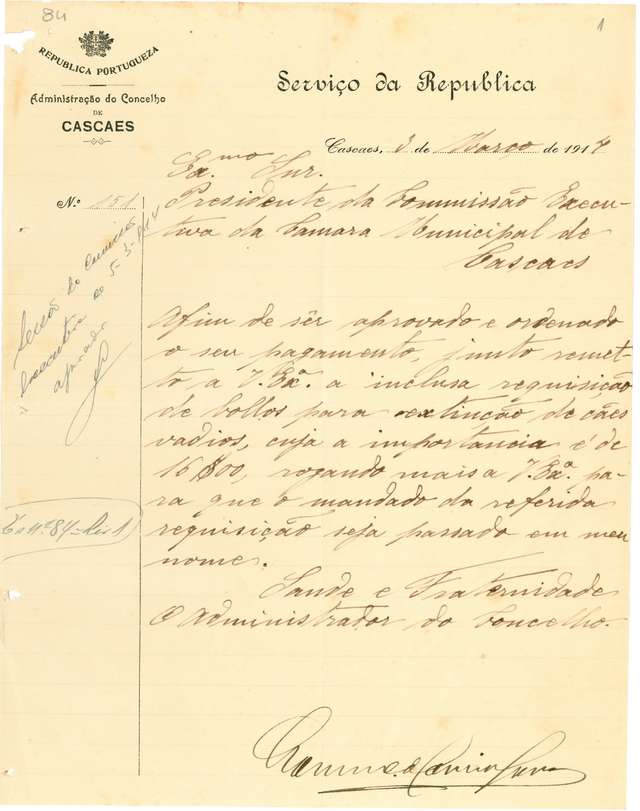 84
1
REPUBLICA PORTUGUEZA
Administração do Concelho
DE
CASCAES
Serviço da Republica
Cascaes, 3 de Março de 1914
N.º 151
Ex.mo Snr.
Presidente da Commissão Execu-
tiva da Camara Municipal de
Cascaes
Afim de sêr aprovado e ordenado
o seu pagamento, junto remet-
to, a V. Exª. a inclusa requisição
de bollos para extincção de cães
vadios, cuja a importancia é de
16$00, rogando mais a V. Exª. pa-
ra que o mandado da referida
requisição seja passado em meu
nome.
Saude e Fraternidade
O Administrador do Concelho.
executiva de 5-3-914
aprovado
nº 84